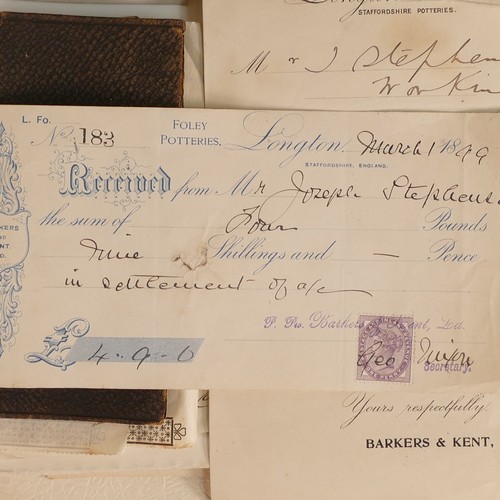 STAFFORDSHIRE POTTERIES.
Mr J Stephen
Workin
L. Fo.
No. 183
FOLEY POTTERIES.
Longton, March 1 1899
STAFFORDSHIRE, ENGLAND.
Received from Mr Joseph Stephens
the sum of Four Pounds
Nine Shillings and — Pence
in settlement of a/c
KERS
ENT.
P. Pro. Barkers & Kent, Ld.
£ 4.9.0
Geo Nixon
Secretary.
Yours respectfully.
BARKERS & KENT,